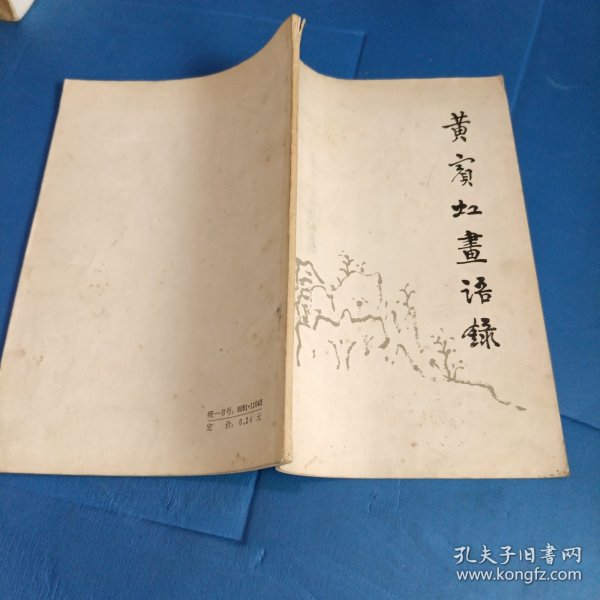 黄賓虹畫語録
统一书号：8081·11042
定　价：0.21 元
孔夫子旧书网
www.kongfz.com